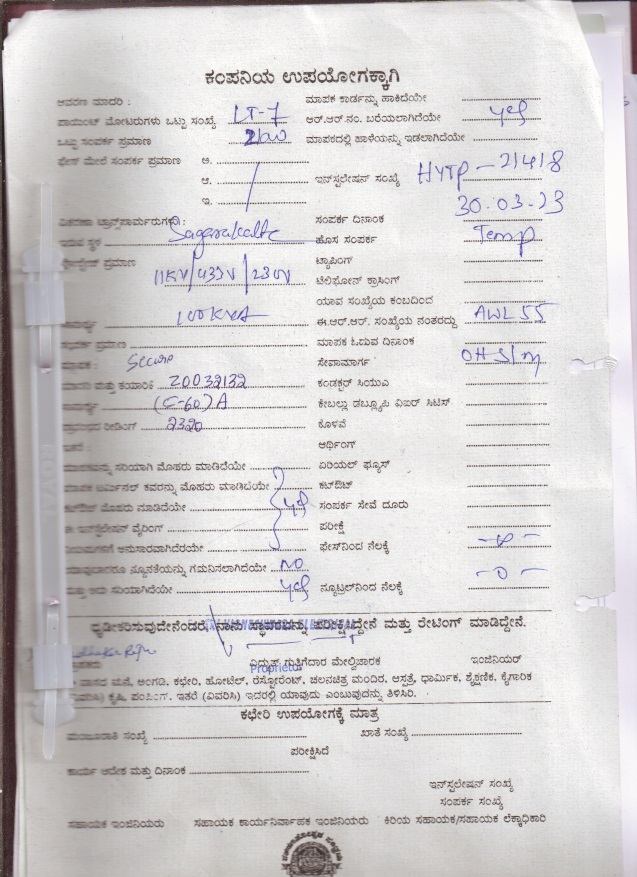 ಕಂಪನಿಯ ಉಪಯೋಗಕ್ಕಾಗಿ
ಆವರಣ ಮಾದರಿ : ಮಾಪಕ ಕಾರ್ಡನ್ನು ಹಾಕಿದೆಯೇ
ಪಾಯಿಂಟ್ ಮೋಟರುಗಳು ಒಟ್ಟು ಸಂಖ್ಯೆ LT-7 ಆರ್.ಆರ್.ನಂ. ಬರೆಯಲಾಗಿದೆಯೇ yes
ಒಟ್ಟು ಸಂಪರ್ಕ ಪ್ರಮಾಣ ಮಾಪಕದಲ್ಲಿ ಹಾಳೆಯನ್ನು ಇಡಲಾಗಿದೆಯೇ
ಫೇಸ್ ಮೇಲೆ ಸಂಪರ್ಕ ಪ್ರಮಾಣ ಅ.
ಆ. ಇನ್ಸ್ಟಲೇಷನ್ ಸಂಖ್ಯೆ HYTP-21418
ಇ. 30.03.23
ವಿತರಣಾ ಟ್ರಾನ್ಸ್‌ಫಾರ್ಮರುಗಳು: ಸಂಪರ್ಕ ದಿನಾಂಕ
ಇರುವ ಸ್ಥಳ Sagarakatte ಹೊಸ ಸಂಪರ್ಕ Temp
ಪ್ರಮಾಣ 11KV/433V/230V ಟ್ಯಾಪಿಂಗ್
ಟೆಲಿಫೋನ್ ಕ್ರಾಸಿಂಗ್
ಯಾವ ಸಂಖ್ಯೆಯ ಕಂಬದಿಂದ
ಸಾಮರ್ಥ್ಯ 100KVA ಈ.ಆರ್.ಆರ್. ಸಂಖ್ಯೆಯ ನಂತರದ್ದು AWL55
ಸಂಪರ್ಕ ಪ್ರಮಾಣ ಮಾಪಕ ಓದುವ ದಿನಾಂಕ
ಮಾಪಕ : Secure ಸೇವಾಮಾರ್ಗ OH
ಮಾದರಿ ಮತ್ತು ತಯಾರಿಕೆ 20032132 ಕಂಡಕ್ಟರ್ ಸಿಯುಎ
ಸಾಮರ್ಥ್ಯ (5-60)A ಕೇಬಲ್ಲು ಡಬ್ಲ್ಯೂಪಿ ವಿಐರ್ ಸಿಟಿಸ್
ಪ್ರಾರಂಭದ ರೀಡಿಂಗ್ 2320 ಕೊಳವೆ
ಇತರೆ : ಅರ್ಥಿಂಗ್
ಮಾಪಕವನ್ನು ಸರಿಯಾಗಿ ಮೊಹರು ಮಾಡಿದೆಯೇ ಏರಿಯಲ್ ಫ್ಯೂಸ್
ಮಾಪಕ ಟರ್ಮಿನಲ್ ಕವರನ್ನು ಮೊಹರು ಮಾಡಿದೆಯೇ ಕಟ್‌ಔಟ್
ಕಟ್‌ಔಟ್ ಮೊಹರು ಮಾಡಿದೆಯೇ yes ಸಂಪರ್ಕ ಸೇವೆ ದೂರು
ಈ ಇನ್ಸ್ಟಲೇಷನ್ ವೈರಿಂಗ್ ಪರೀಕ್ಷೆ
ನಿಯಮಗಳಿಗೆ ಅನುಸಾರವಾಗಿದೆರಯೇ ಫೇಸ್‌ನಿಂದ ನೆಲಕ್ಕೆ
ಯಾವುದಾದರೂ ನ್ಯೂನತೆಯನ್ನು ಗಮನಿಸಲಾಗಿದೆಯೇ NO
ಮತ್ತು ಅದು ಸರಿಯಾಗಿದೆಯೇ yes ನ್ಯೂಟ್ರಲ್‌ನಿಂದ ನೆಲಕ್ಕೆ -0-
ಧೃಡೀಕರಿಸುವುದೇನೆಂಡರೆ, ನಾನು ಸ್ಥಾವರವನ್ನು ಪರೀಕ್ಷಿಸಿದ್ದೇನೆ ಮತ್ತು ರೇಟಿಂಗ್ ಮಾಡಿದ್ದೇನೆ.
ವಿದ್ಯುತ್ ಗುತ್ತಿಗೆದಾರ ಮೇಲ್ವಿಚಾರಕ ಇಂಜಿನಿಯರ್
Proprietor
ವಾಸದ ಮನೆ, ಅಂಗಡಿ, ಕಛೇರಿ, ಹೋಟೆಲ್, ರೆಸ್ಟೋರೆಂಟ್, ಚಲನಚಿತ್ರ ಮಂದಿರ, ಆಸ್ಪತ್ರೆ, ಧಾರ್ಮಿಕ, ಶೈಕ್ಷಣಿಕ, ಕೈಗಾರಿಕ
(ವಿವರಿಸಿ) ಕೃಷಿ, ಪಂಪಿಂಗ್, ಇತರೆ (ವಿವರಿಸಿ) ಇದರಲ್ಲಿ ಯಾವುದು ಎಂಬುವುದನ್ನು ತಿಳಿಸಿರಿ.
ಕಛೇರಿ ಉಪಯೋಗಕ್ಕೆ ಮಾತ್ರ
ಮಂಜೂರಾತಿ ಸಂಖ್ಯೆ ಖಾತೆ ಸಂಖ್ಯೆ
ಪರೀಕ್ಷಿಸಿದೆ
ಕಾರ್ಯ ಆದೇಶ ಮತ್ತು ದಿನಾಂಕ
ಇನ್‌ಸ್ಟಲೇಷನ್ ಸಂಖ್ಯೆ
ಸಂಪರ್ಕ ಸಂಖ್ಯೆ
ಸಹಾಯಕ ಇಂಜಿನಿಯರು ಸಹಾಯಕ ಕಾರ್ಯನಿರ್ವಾಹಕ ಇಂಜಿನಿಯರು ಕಿರಿಯ ಸಹಾಯಕ/ಸಹಾಯಕ ಲೆಕ್ಕಾಧಿಕಾರಿ